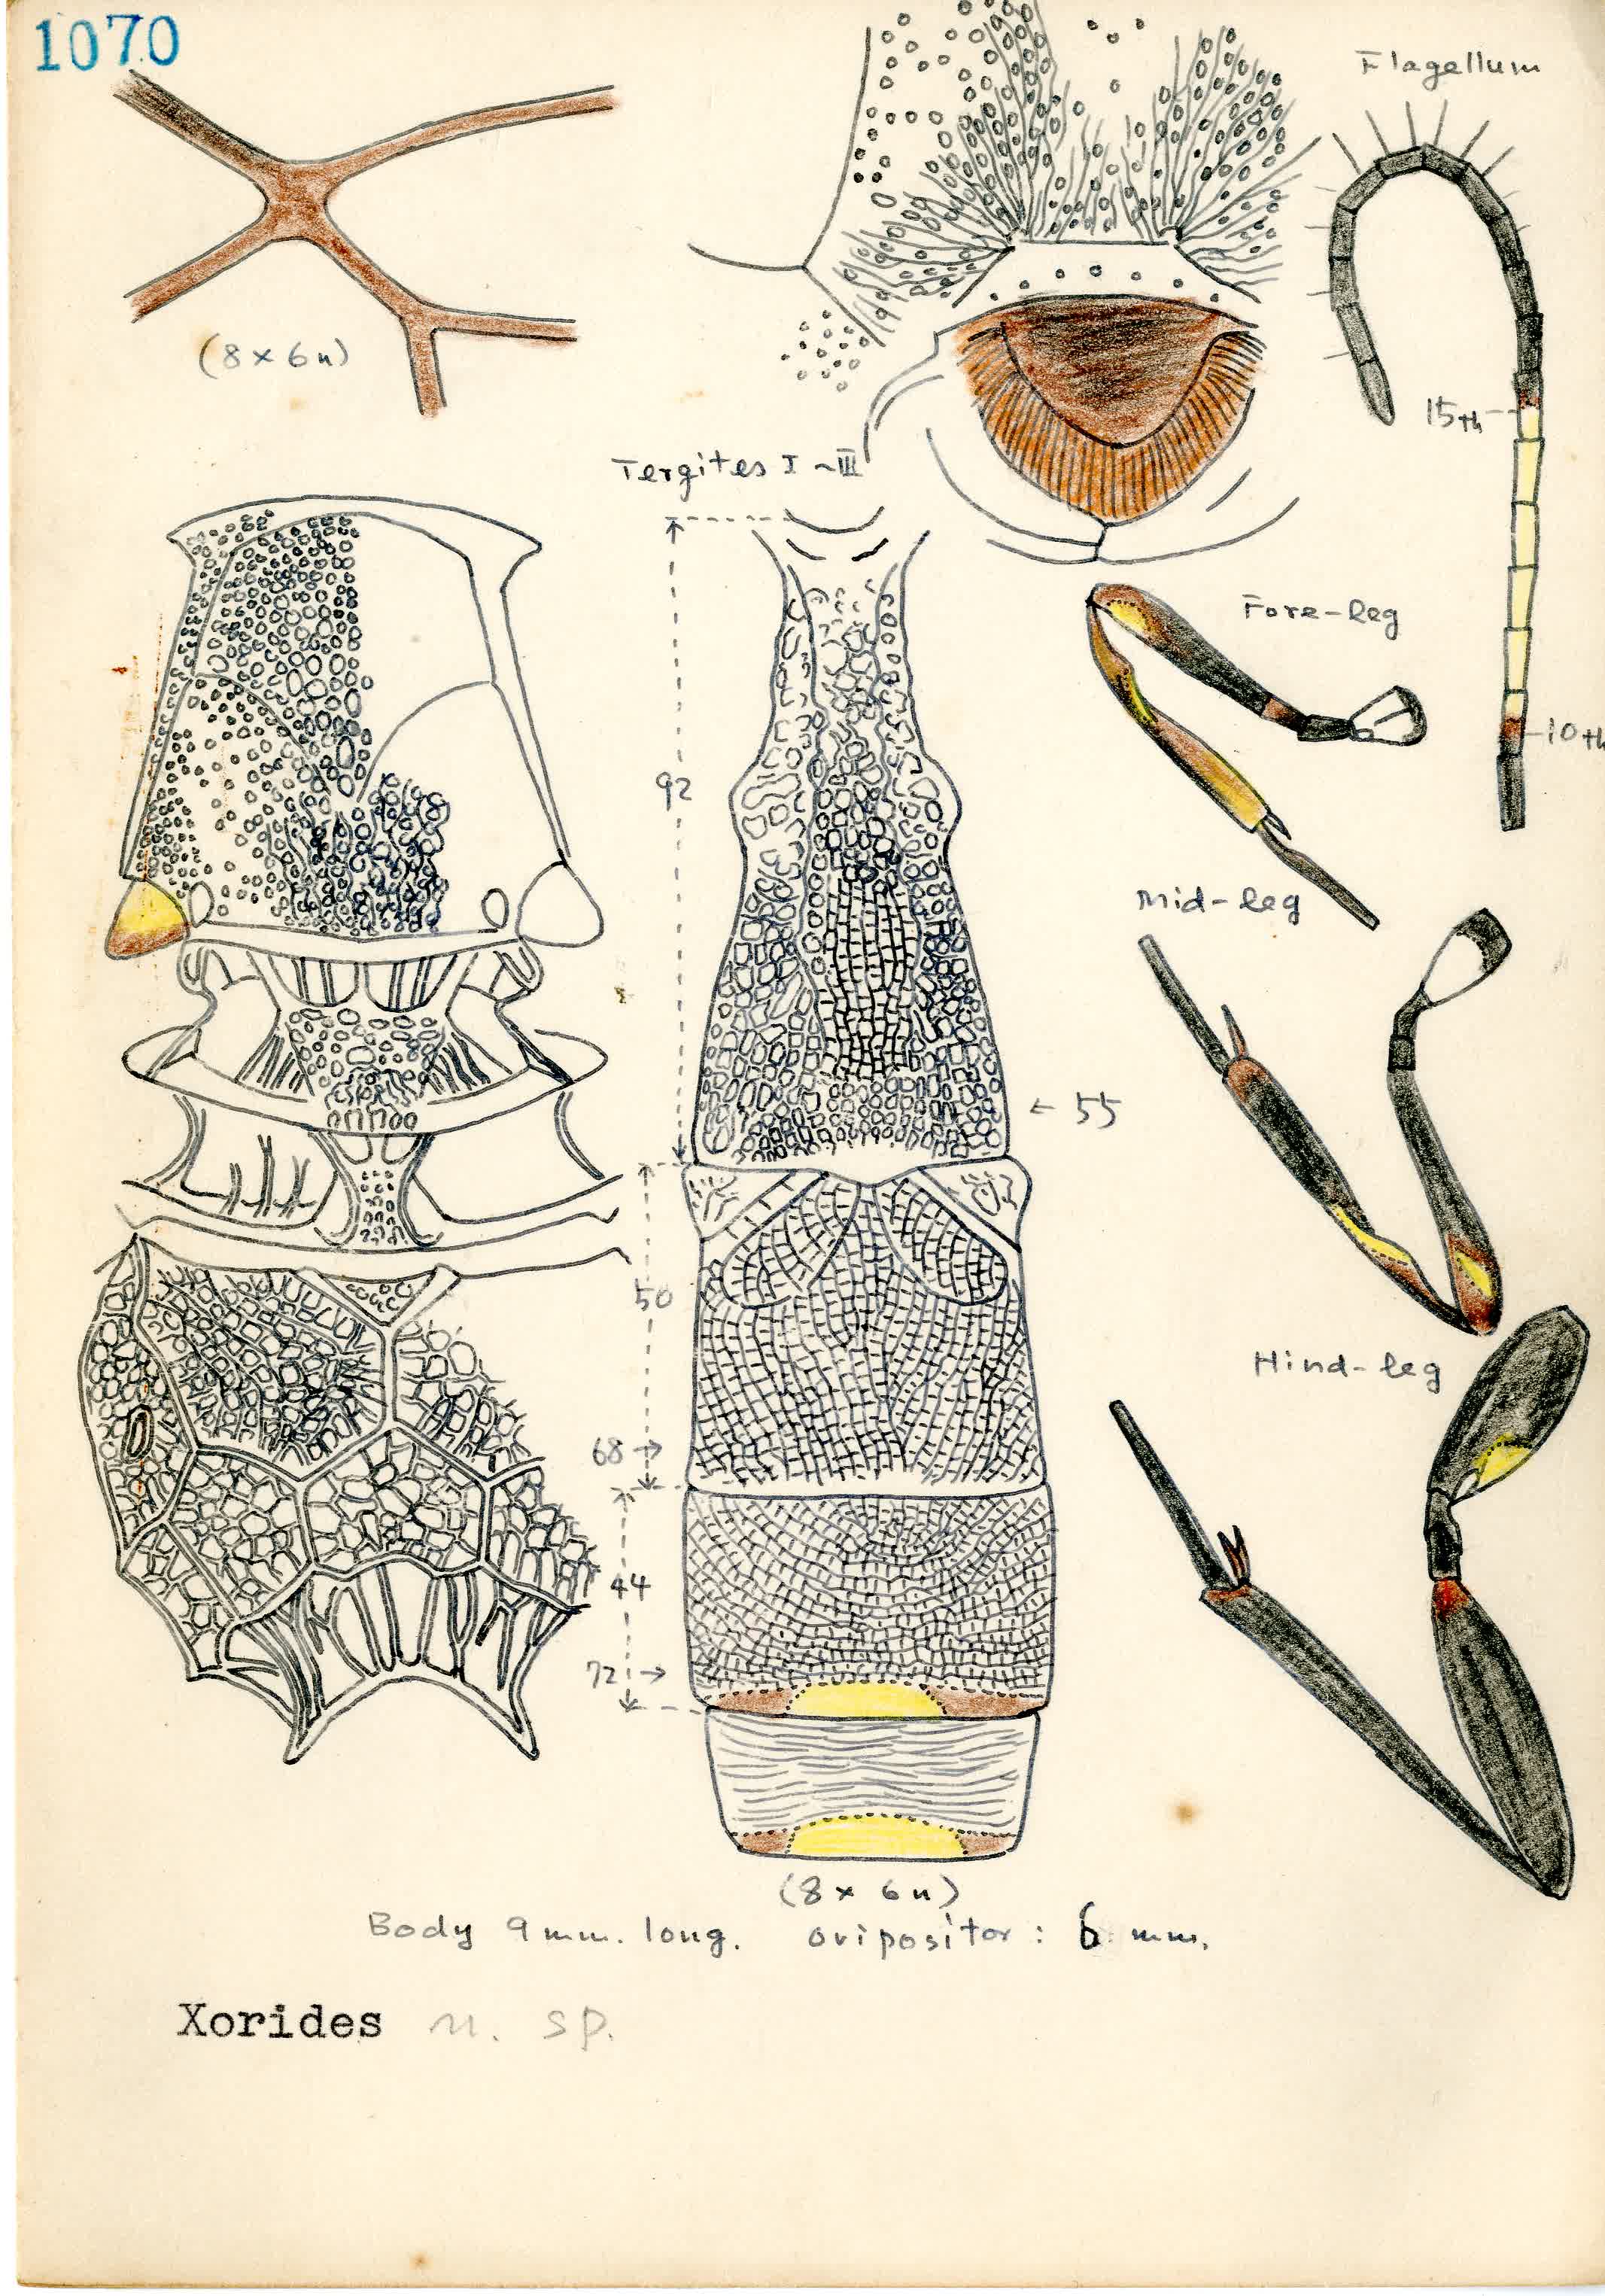 1070
Flagellum
(8 × 6 u)
15th
Tergites I ~ III
Fore-leg
10th
92
Mid-leg
← 55
50
Hind-leg
68 →
44
72 →
(8 × 6 u)
Body 9 mm. long. ovipositor : 6 mm.
Xorides n. sp.